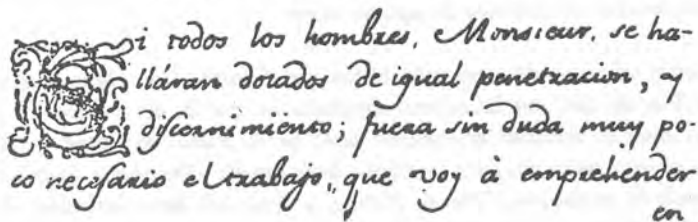 Si todos los hombres, Monsieur, se ha-
lláran dotados de igual penetracion, y
discernimiento; fuera sin duda muy po-
co necesario el trabajo, que voy à emprehender
en